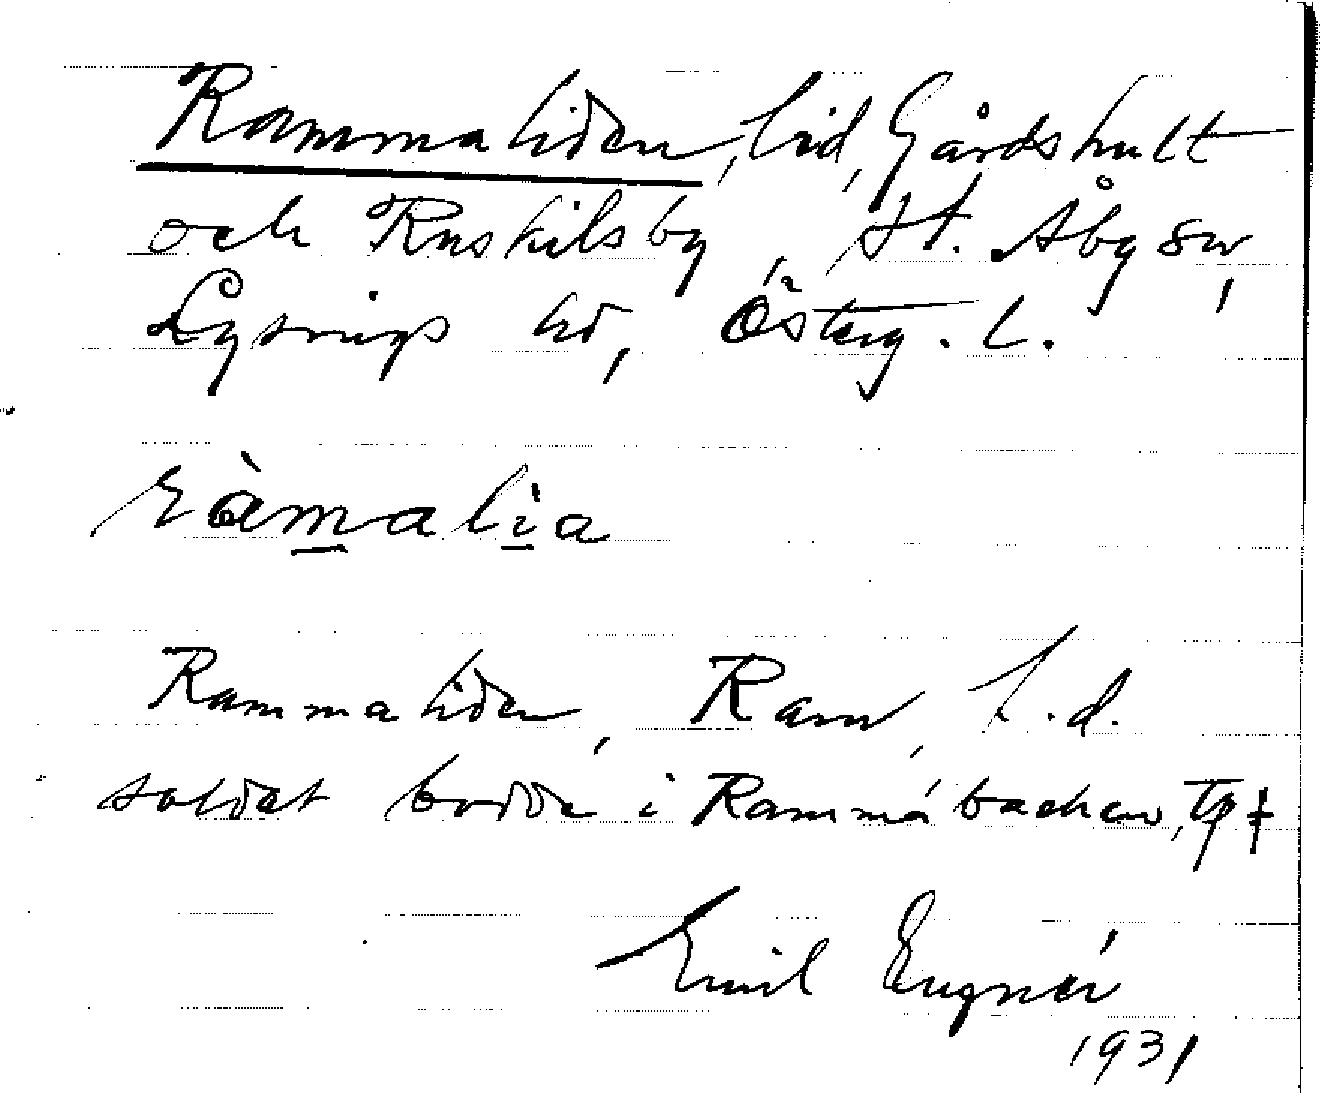 Rammaliden, lid, Gårdshult
och Ruskilsby, St. Åby sn,
Lysings hd, Österg. l.
ràmalìa
Rammaliden, Ram, l.d.
soldat bodde i Rammábacken, Tp ‡
Emil Eugnér
1931